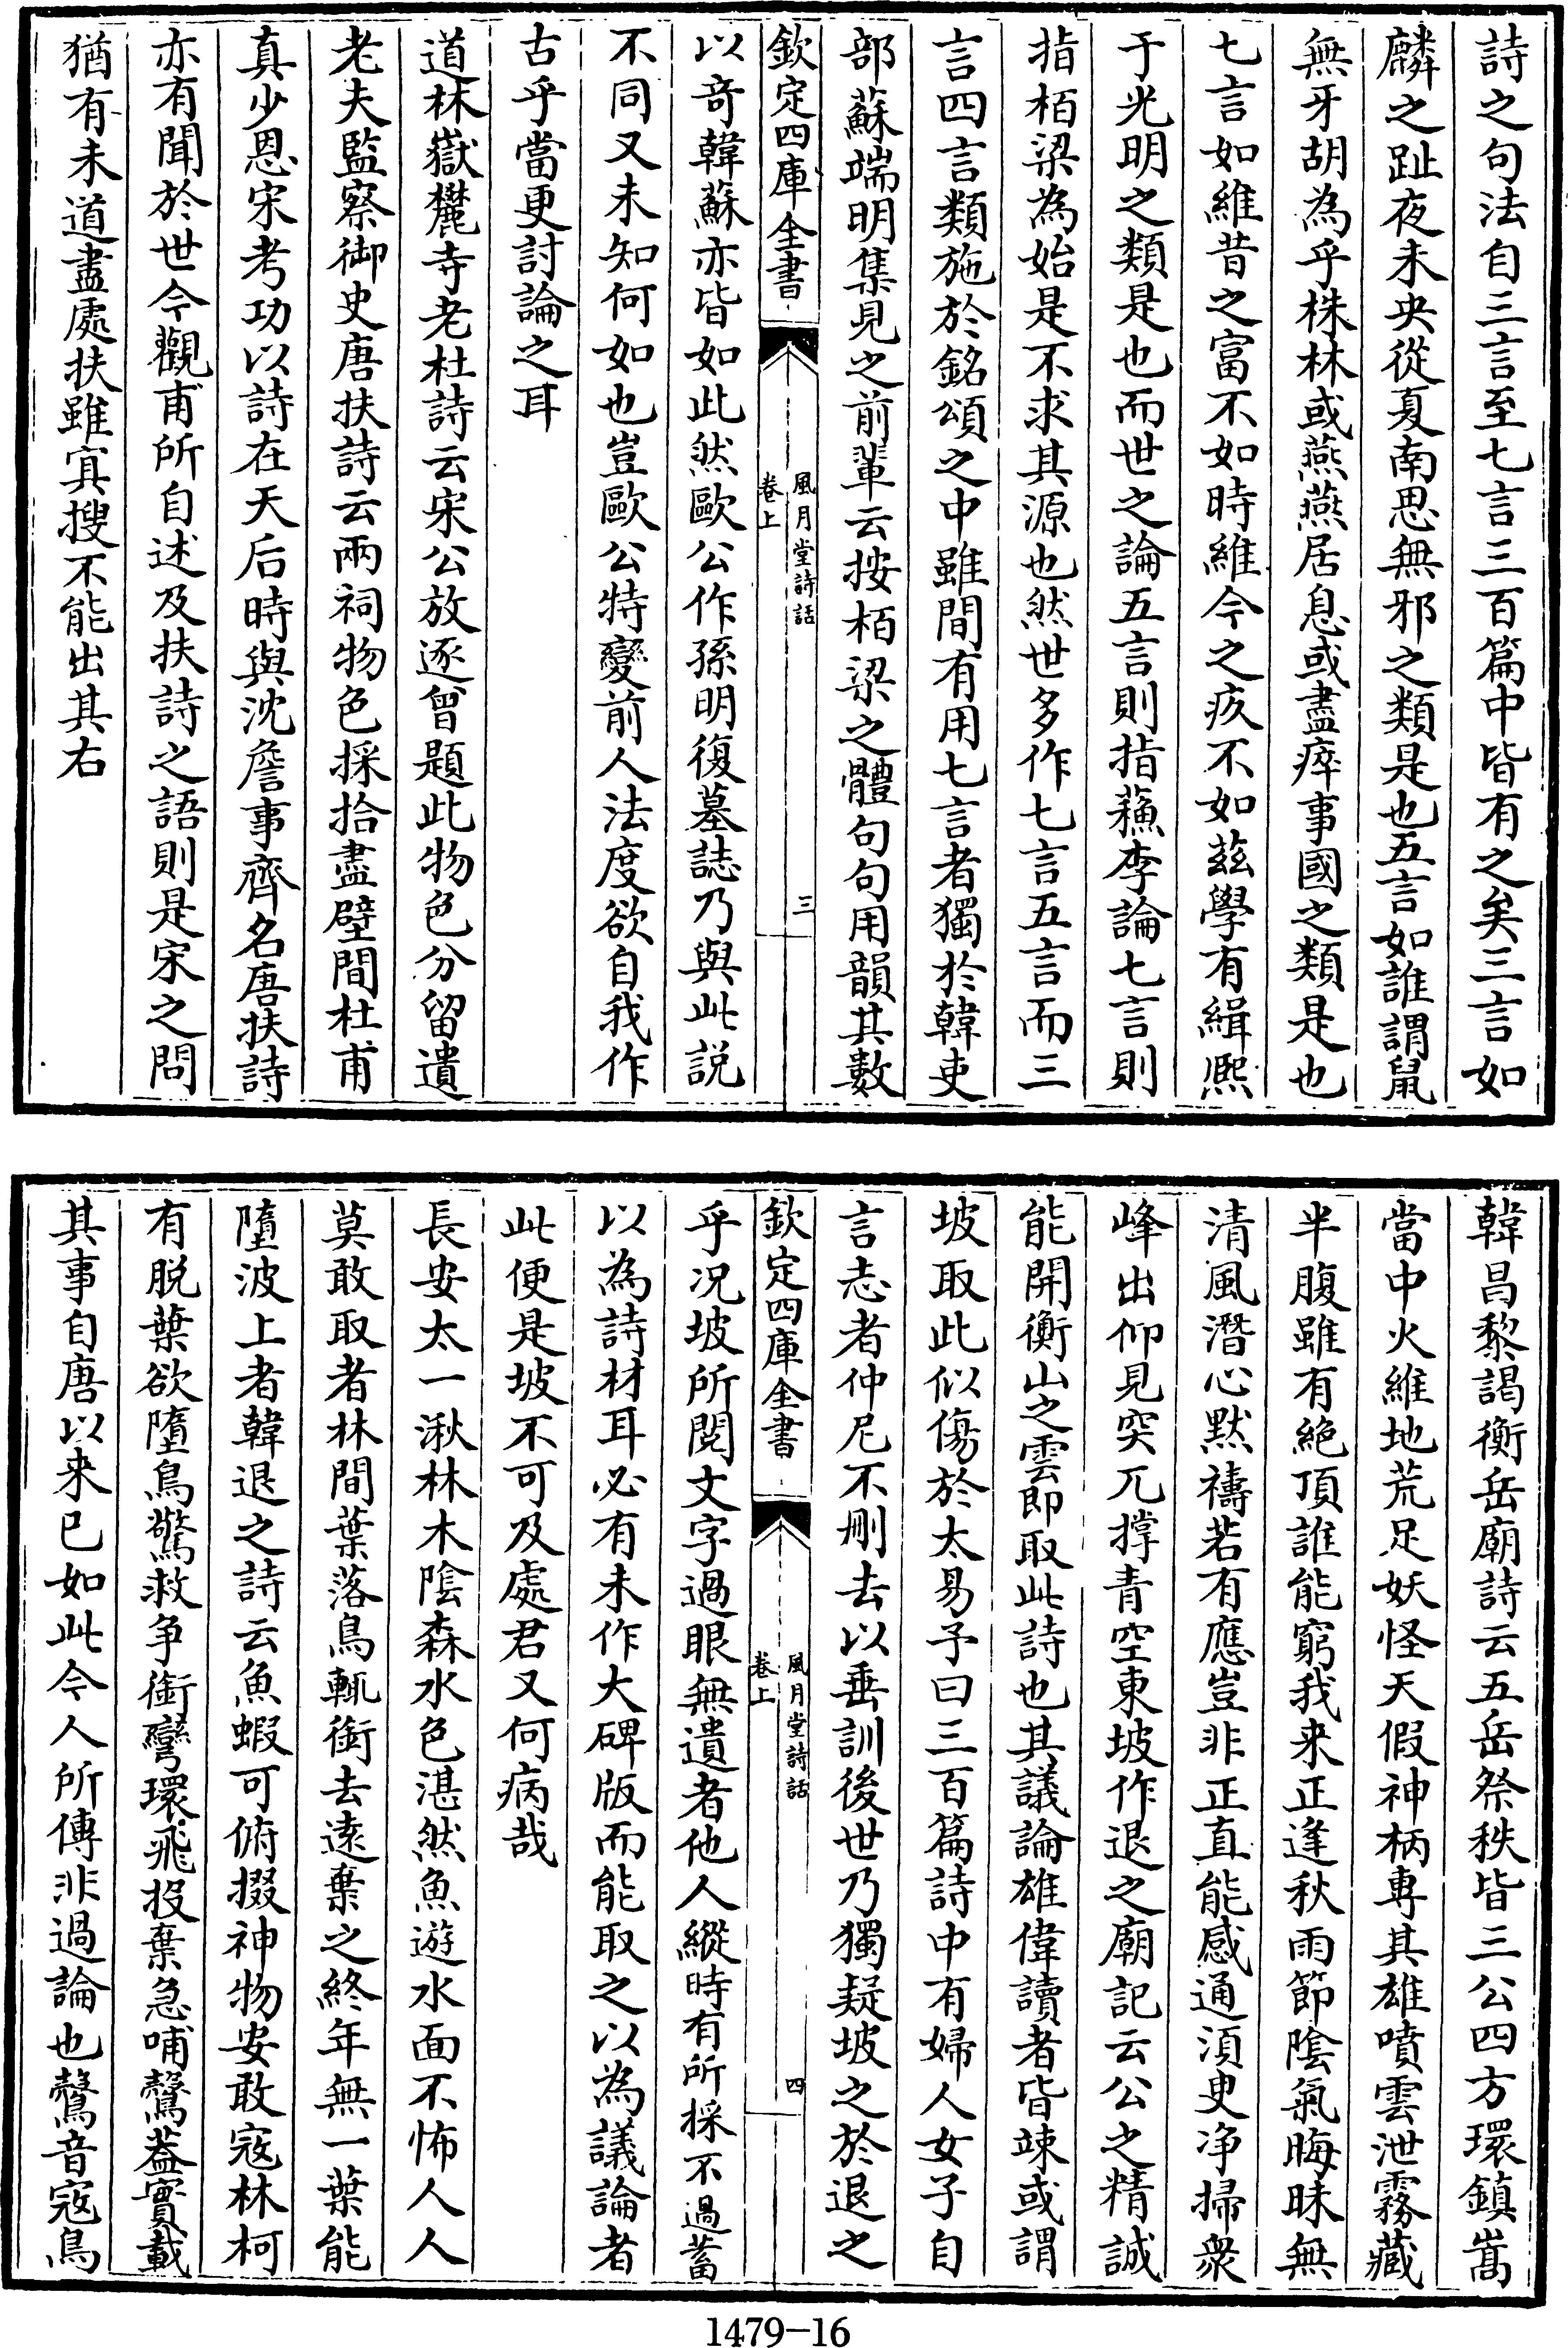 詩之句法自三言至七言三百篇中皆有之矣三言如
麟之趾夜未央從夏南思無邪之類是也五言如誰謂鼠
無牙胡為乎株林或燕燕居息或盡瘁事國之類是也
七言如維昔之富不如時維今之疚不如兹學有緝熈
于光明之類是也而世之論五言則指蘓李論七言則
指栢梁為始是不求其源也然世多作七言五言而三
言四言類施於銘頌之中雖間有用七言者獨於韓吏
部蘇端明集見之前軰云按栢梁之體句句用韻其數
欽定四庫全書
風月堂詩話
卷上
三
以竒韓蘇亦皆如此然歐公作孫明復墓誌乃與此説
不同又未知何如也豈歐公特變前人法度欲自我作
古乎當更討論之耳
道林嶽麓寺老杜詩云宋公放逐曾題此物色分留遺
老夫監察御史唐扶詩云兩祠物色採拾盡壁間杜甫
真少恩宋考功以詩在天后時與沈詹事齊名唐扶詩
亦有聞於世今觀甫所自述及扶詩之語則是宋之問
猶有未道盡處扶雖㝠搜不能出其右
韓昌黎謁衡岳廟詩云五岳祭秩皆三公四方環鎮嵩
當中火維地荒足妖怪天假神柄専其雄噴雲泄霧藏
半腹雖有絶頂誰能窮我来正逢秋雨節隂氣晦昧無
清風潛心黙禱若有應豈非正直能感通湏臾净掃衆
峰出仰見突兀撑青空東坡作退之廟記云公之精誠
能開衡山之雲即取此詩也其議論雄偉讀者皆竦或謂
坡取此似傷於太易予曰三百篇詩中有婦人女子自
言志者仲尼不刪去以垂訓後世乃獨疑坡之於退之
欽定四庫全書
風月堂詩話
卷上
四
乎况坡所閱文字過眼無遺者他人縱時有所採不過蓄
以為詩材耳必有未作大碑版而能取之以為議論者
此便是坡不可及處君又何病哉
長安太一湫林木隂森水色湛然魚遊水面不怖人人
莫敢取者林間葉落鳥輒銜去遠棄之終年無一葉能
墮波上者韓退之詩云魚蝦可俯掇神物安敢寇林柯
有脱葉欲墮鳥驚救争銜彎環飛投棄急哺鷇葢實載
其事自唐以来已如此今人所傳非過論也鷇音寇鳥
1479-16